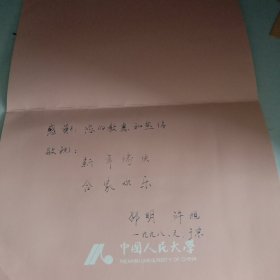 感谢您的教惠和热情
敬祝:
新年愉快
合家欢乐
邹明 许旭
一九九八、元 于京
中国人民大学
RENMIN UNIVERSITY OF CHINA